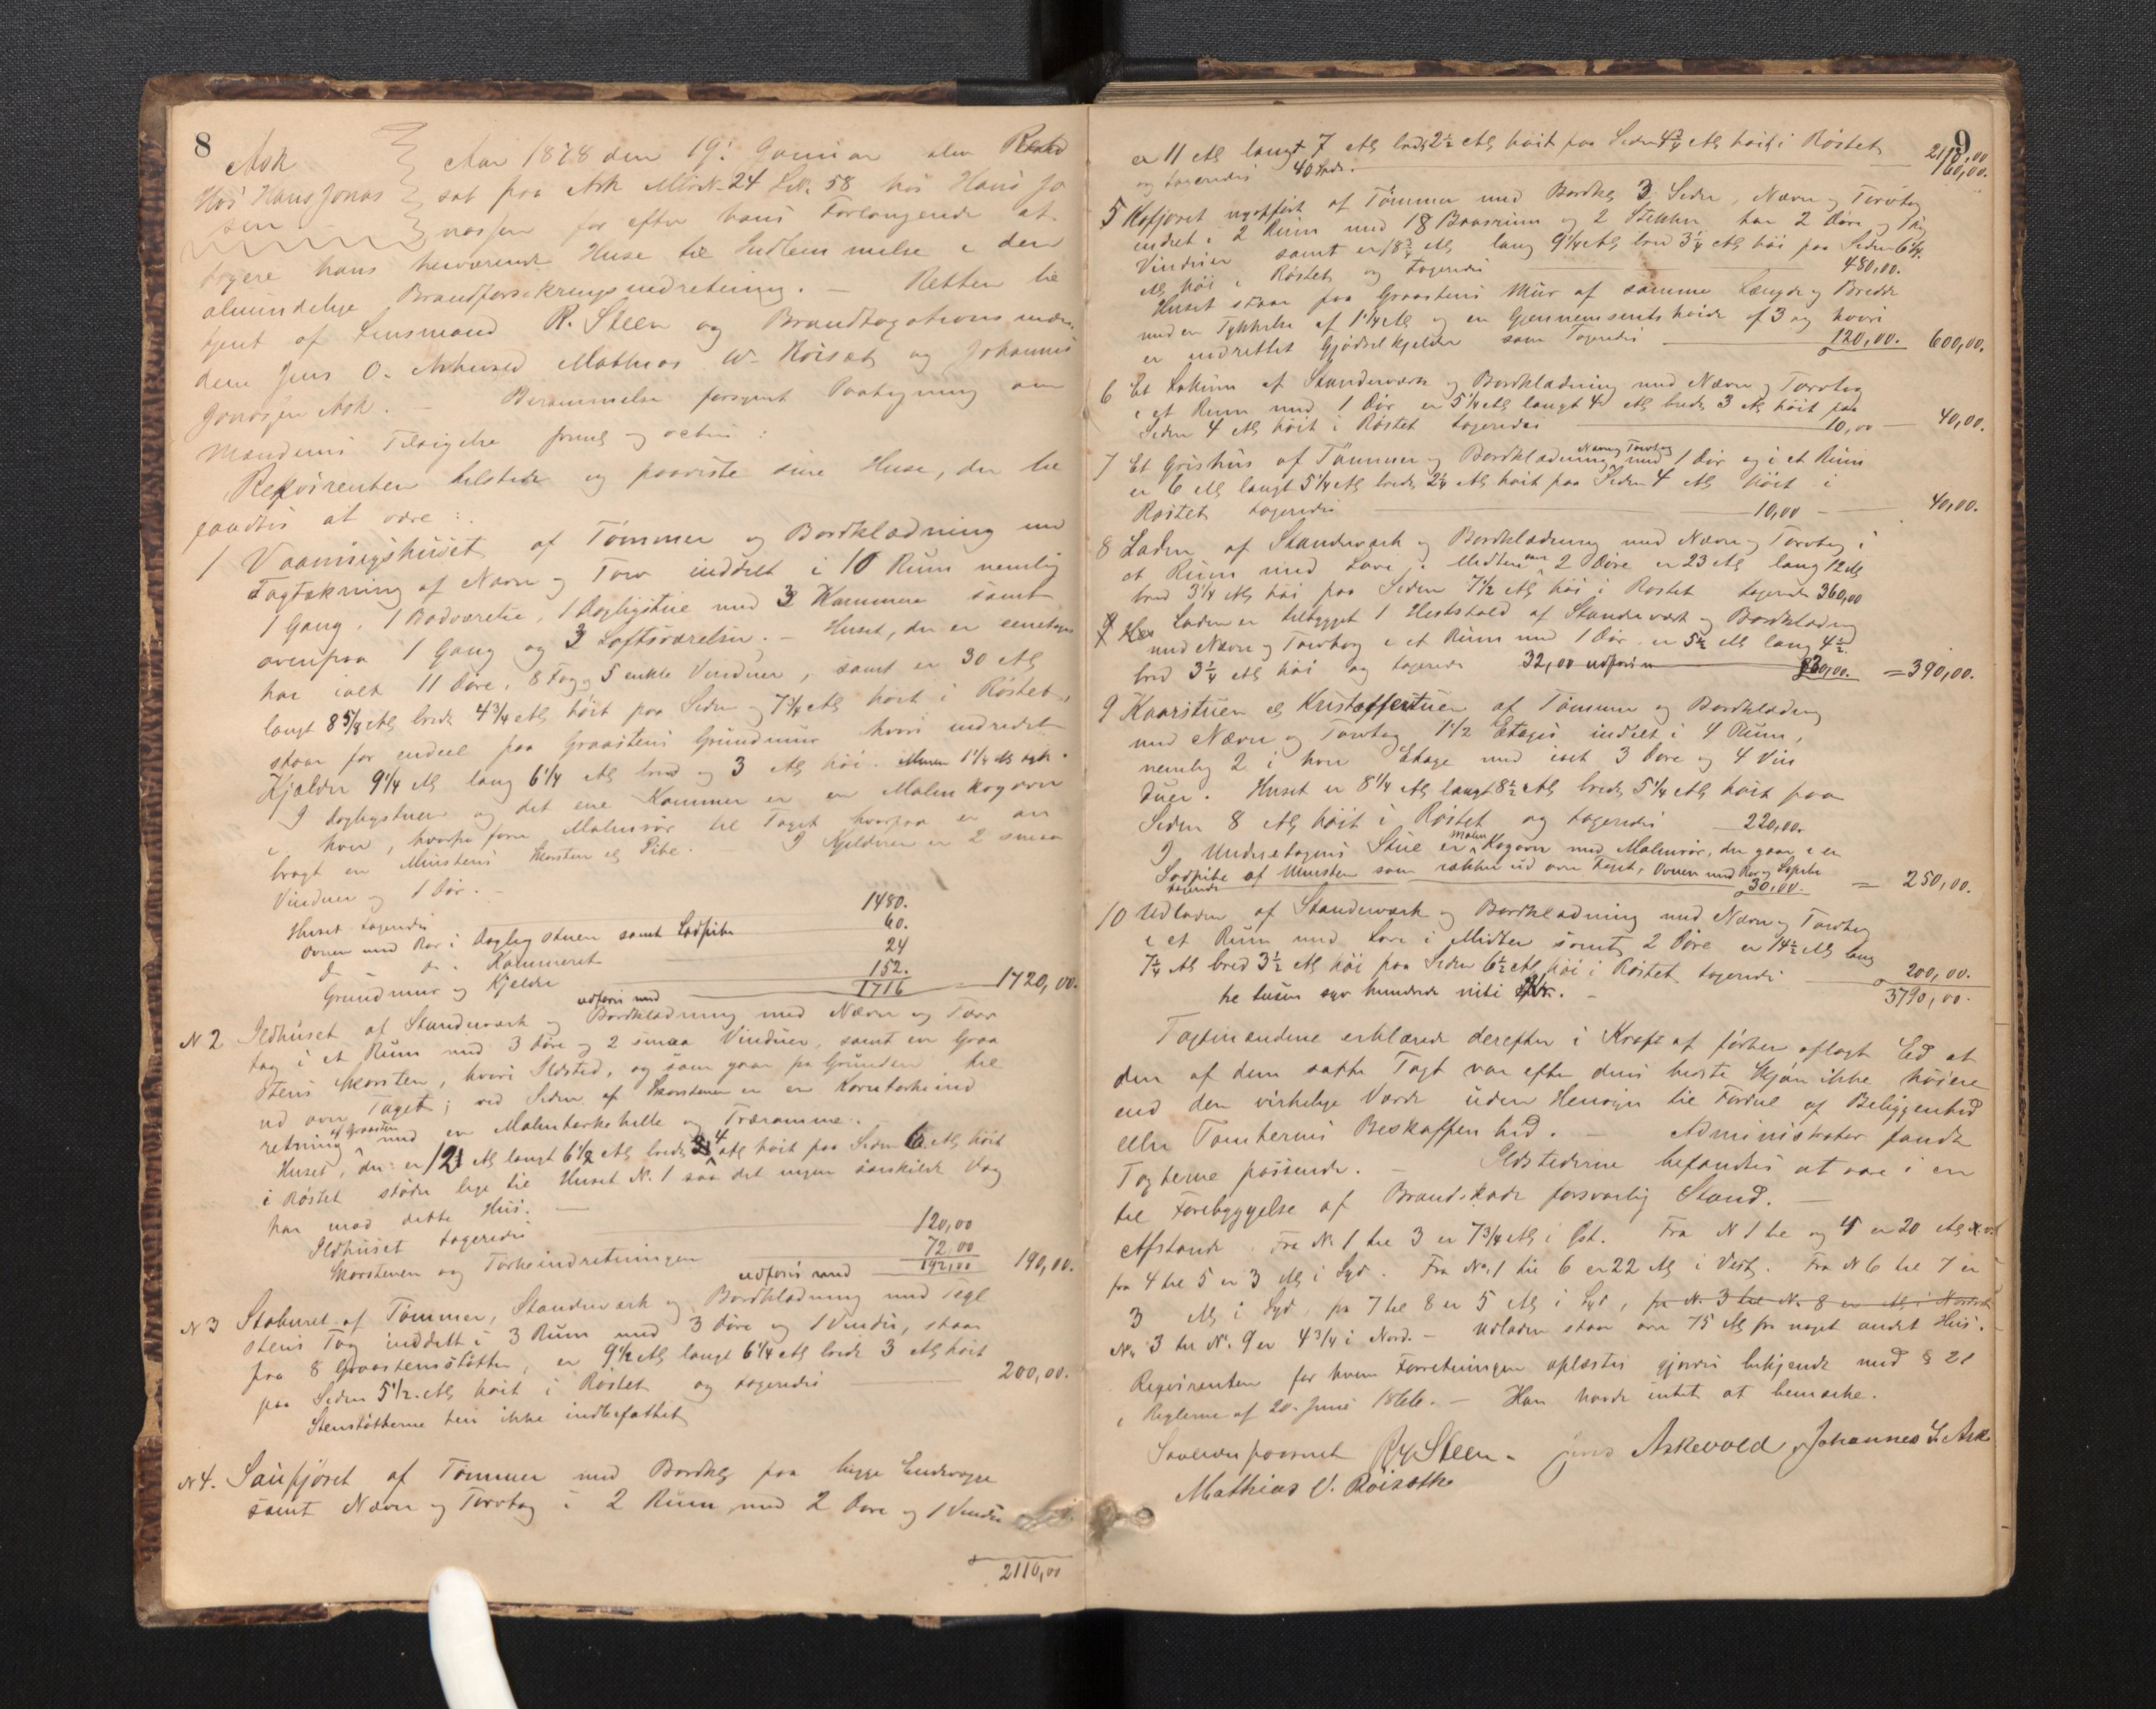 8
Ask
Hos Hans Jonas
sen
Aar 1878 den 19. Januar blev Retten
sat paa Ask Mtr N. 24 L.N. 58 hos Hans Jo
nassen for efter hans Forlangende at
taxere hans herværende Huse til Indlemmelse i den
almindelige Brandforsikringsindretning. — Retten be
tjent af Lensmand R. Steen og Brandtaxationsmæn
dene Jens O. Askevold Mathias W. Röisæt og Johannes
Jonassen Ask. — Berammelse forsynet Paategning om
Mændenes Tilsigelse freml og actes:
Reqvirenten tilstede og paaviste sine Huse, der be
fandtes at være:
1 Vaaningshuset af Tömmer og Bordklædning med
Tagtækning af Næver og Torv inddelt i 10 Rum nemlig
1 Gang, 1 Badværelse, 1 Dagligstue med 3 Kammere samt
ovenpaa 1 Gang og 3 Loftsværelser. — Huset, der er eenetages
har ialt 11 Döre, 8 Fag og 5 enkelte Vinduer, samt er 30 Al
langt 8 5/8 Al bredt 4 3/4 Al höit paa Siden og 7 3/4 Al höit i Röstet,
staar for endeel paa Graastens Grundmur hvori indredet
Kjælder 9 1/4 Al lang 6 1/4 Al bred og 3 Al höi. Muren 1 1/4 Al tyk.
I Dagligstuen og det ene Kammer er en Malmkogovn
i hver, hvorfra förer Malmrör til Taget hvorpaa er an
bragt en Murstens Skorsten el Pibe. — I Kjelderen er 2 smaa
Vinduer og 1 Dör. —
Huset taxeredes 1480.
Ovnen med Rör i Dagligstuen samt Lodpibe 60.
do do i Kammeret 24
Grundmur og Kjelder 152.
udföres med 1716 1720,00.
N 2 Ildhuset af Standerværk og Bordklædning med Næver og Torv
tag i et Rum med 3 Döre og 2 smaa Vinduer, samt en Graa
stens Skorsten, hvori Ildsted, og som gaar fra Grunden til
ud over Taget; ved Siden af Skorstenen er en Korntörkeind
retning af Graasten med en Malmtörkehelle og Træramme.
Huset, der er 12 Al langt 6 1/2 Al bredt 4 Al höit paa Siden 6 Al höit
i Röstet stöder lige til Huset N. 1 saa det ingen særskilt Væg
har mod dette Hus. —
Ildhuset taxeredes 120,00
Skorstenen og Törkeindretningen 72,00
udföres med 192,00 190,00.
N 3 Staburet af Tömmer, Standerværk og Bordklædning med Tegl
stens Tag inddelt i 3 Rum med 3 Döre og 1 Vindu, staar
paa 8 Graastensstötter, er 9 1/2 Al langt 6 1/4 Al bredt 3 Al höit
paa Siden 5 1/2 Al höit i Röstet og taxeredes 200,00.
Stenstötterne heri ikke indbefattet
N 4. Saufjöset af Tömmer med Bordkl paa begge Endevægge
samt Næver og Torvtag i 2 Rum med 2 Döre og 1 Vindu
2110,00
9
2110,00
er 11 Al langt 7 Al bredt 2 1/2 Al höit paa Siden 4 3/4 Al höit i Röstet
og taxeredes 160,00.
5 Kofjöset nyopfört af Tömmer med Bordkl 3 Sider, Næver og Torvtag
indret i 2 Rum med 18 Baasrum og 2 Stekker har 2 Döre og 1
Vinduer samt er 18 3/4 Al lang 9 1/4 Al bred 3 1/4 Al höi paa Siden 6 1/4
Al höi i Röstet og taxeredes 480,00.
Huset staar paa Graastens Mur af samme Længde og Bredde
med en Tykkelse af 1 1/4 Al og en Gjennemsnitshöide af 3 og hvori
er indrettet Gjödselkjelder som taxeredes 120,00. 600,00.
6 Et Lokum af Standerværk og Bordklædning med Næver og Torvtag
i et Rum med 1 Dör er 5 1/4 Al langt 4 Al bredt 3 Al höit paa
Siden 4 Al höit i Röstet taxeredes 10,00 40,00.
7 Et Grishus af Tömmer og Bordklædning Næver og Torvtag med 1 Dör og i et Rum
er 6 Al langt 5 1/4 Al bredt 2 1/4 Al höit paa Siden 4 Al höit i
Röstet taxeredes 10,00 40,00.
8 Laden af Standerværk og Bordklædning med Næver og Torvtag i
et Rum med Lave i Midten samt 2 Döre er 23 Al lang 12 Al
bred 3 1/4 Al höi paa Siden 7 1/2 Al höi i Röstet taxeredes 360,00
Laden er tilbygget 1 Heststald af Standerværk og Bordklædning
med Næver og Torvtag i et Rum med 1 Dör er 5 1/2 Al lang 4 1/2
bred 3 1/4 Al höi og taxeredes 32,00 udföres m 30,00. = 390,00.
9 Kaarstuen el Kristofferstuen af Tömmer og Bordklædning
med Næver og Torvtag 1 1/2 Etages inddelt i 4 Rum,
nemlig 2 i hver Etage med ialt 3 Döre og 4 Vin
duer. Huset er 8 1/4 Al langt 8 1/2 Al bredt 5 1/4 Al höit paa
Siden 8 Al höit i Röstet og taxeredes 220,00.
I Underetagens Stue er Malm Kogovn med Malmrör, der gaar i en
Lodpibe af Mursten som rækker ud over Taget, Ovnen med Rör og Lodpibe
taxeredes 30,00. = 250,00.
10 Udladen af Standerværk og Bordklædning med Næver og Torvtag
i et Rum med Lave i Midten samt 2 Döre er 14 1/2 Al lang
7 1/4 Al bred 3 1/2 Al höi paa Siden 6 1/2 Al höi i Röstet taxeredes 200,00.
tre tusen syv hundrede niti Kr. 3790,00.
Taxtmændene erklærede derefter i Kraft af förhen aflagt Eed at
den af dem satte Taxt var efter deres bedste Skjön ikke höiere
end den virkelige Værdi uden Hensyn til Fordel af Beliggenhed
eller Tomternes Beskaffenhed. — Administrator fandt
Taxterne passende. — Ildstederne befandtes at være i en
til Forebyggelse af Brandskade forsvarlig Stand. —
Afstande. Fra N. 1 til 3 er 7 3/4 Al i Öst. Fra N 1 til og 4 er 20 Al
fra 4 til 5 er 3 Al i Syd. Fra No. 1 til 6 er 22 Al i Vest. Fra N 6 til 7 er
3 Al i Syd, fra 7 til 8 er 5 Al i Syd, fra N. 3 til N. 8 er Al i Nordvest
No. 3 til N. 9 er 4 3/4 i Nord. — Udladen staar over 75 Al fra noget andet Hus.
Reqvirenten for hvem Forretningen oplæstes gjordes bekjendt med § 21
i Reglerne af 20. Juni 1866. — Han havde intet at bemærke.
Saaledes passeret R Steen. Jens Askevold Johannes J. Ask
Mathias V. Röisæth